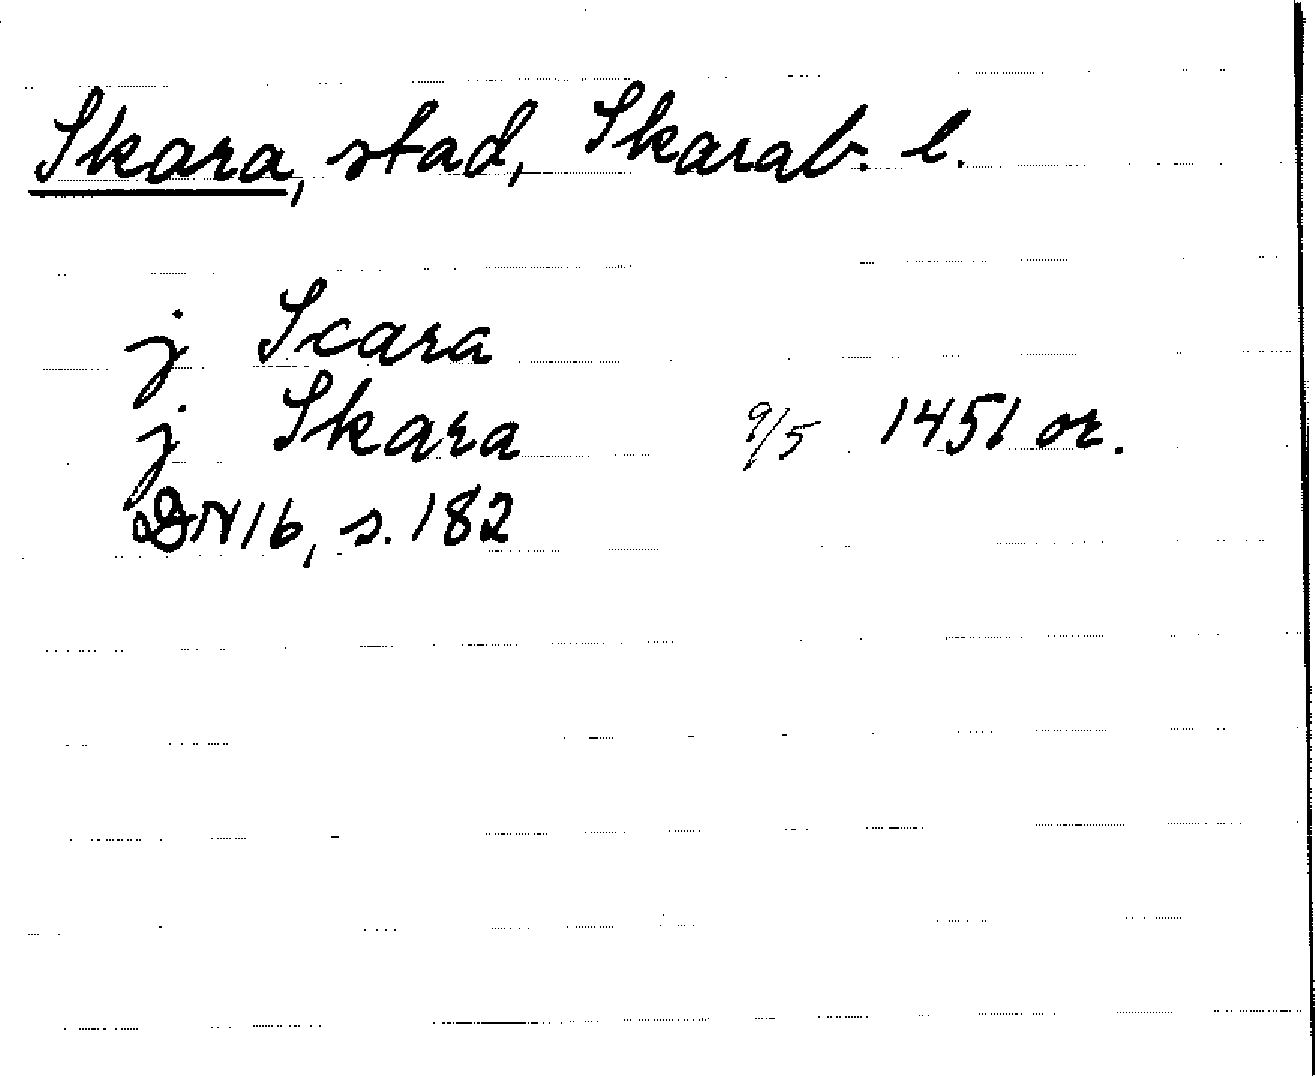 Skara, stad, Skarab. l.
j Scara
j Skara 9/5 1451 or.
DN 16, s. 182